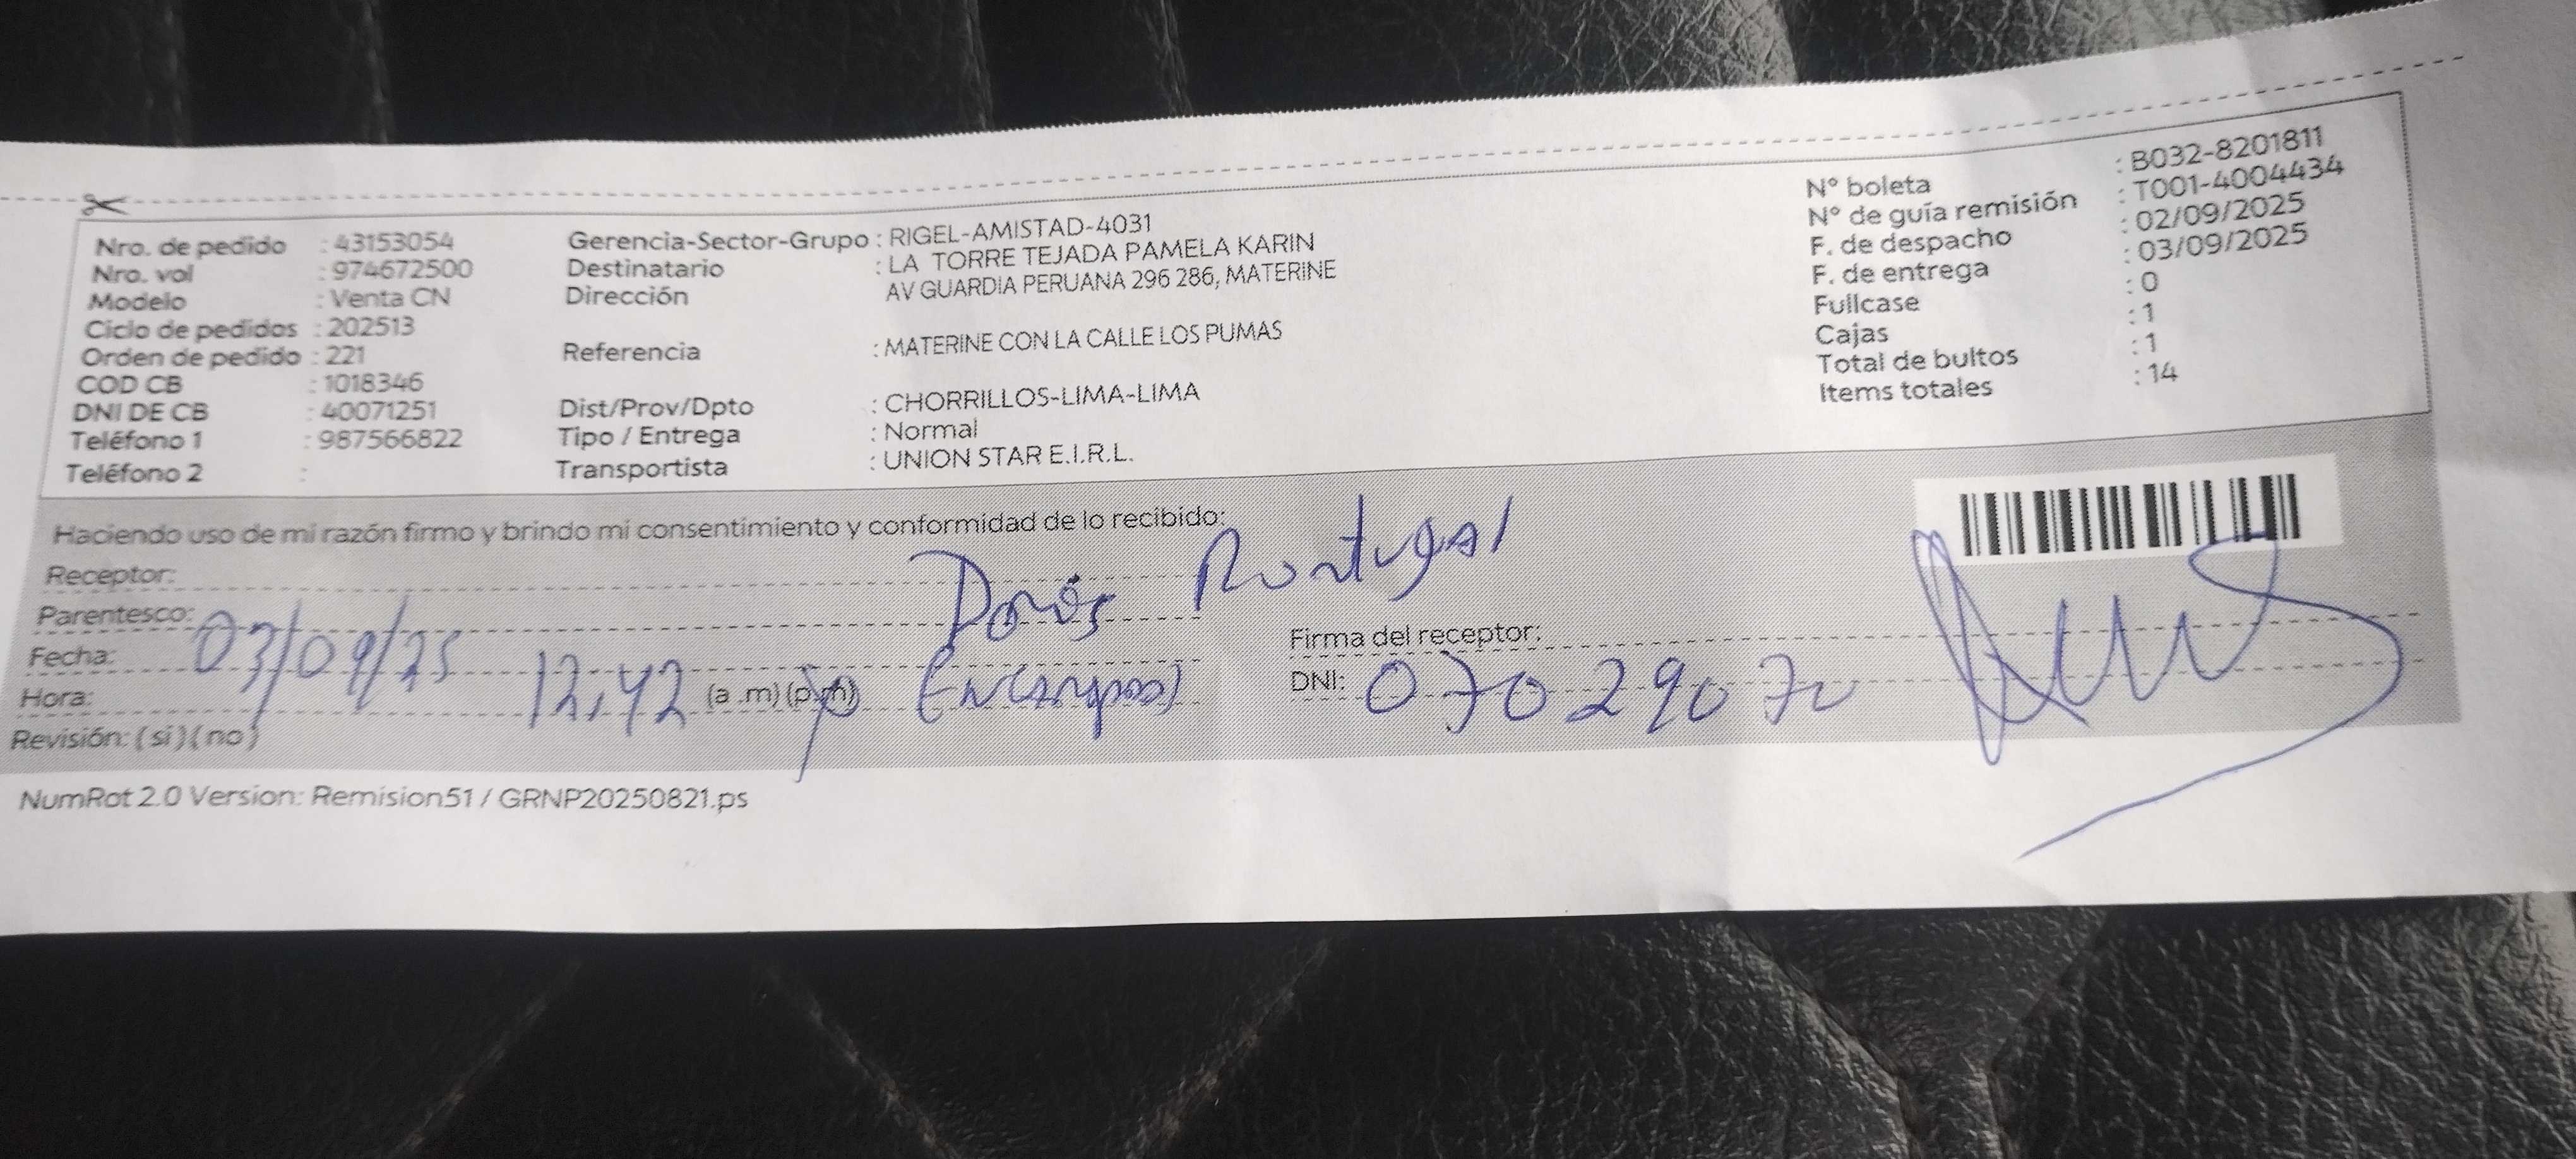 Nro. de pedido : 43153054
Nro. vol : 974672500
Modelo : Venta CN
Ciclo de pedidos : 202513
Orden de pedido : 221
COD CB : 1018346
DNI DE CB : 40071251
Teléfono 1 : 987566822
Teléfono 2 :
Gerencia-Sector-Grupo : RIGEL-AMISTAD-4031
Destinatario : LA TORRE TEJADA PAMELA KARIN
Dirección AV GUARDIA PERUANA 296 286, MATERINE
Referencia : MATERINE CON LA CALLE LOS PUMAS
Dist/Prov/Dpto : CHORRILLOS-LIMA-LIMA
Tipo / Entrega : Normal
Transportista : UNION STAR E.I.R.L.
N° boleta : B032-8201811
N° de guía remisión : T001-4004434
F. de despacho : 02/09/2025
F. de entrega : 03/09/2025
Fullcase : 0
Cajas : 1
Total de bultos : 1
Items totales : 14
Haciendo uso de mi razón firmo y brindo mi consentimiento y conformidad de lo recibido:
Receptor: Portugal
Parentesco:
Fecha: 03/09/25
Hora: 12,42 (a .m) (p.m)
Revisión: (si) (no)
Firma del receptor:
DNI: 07029070
NumRot 2.0 Version: Remision51 / GRNP20250821.ps